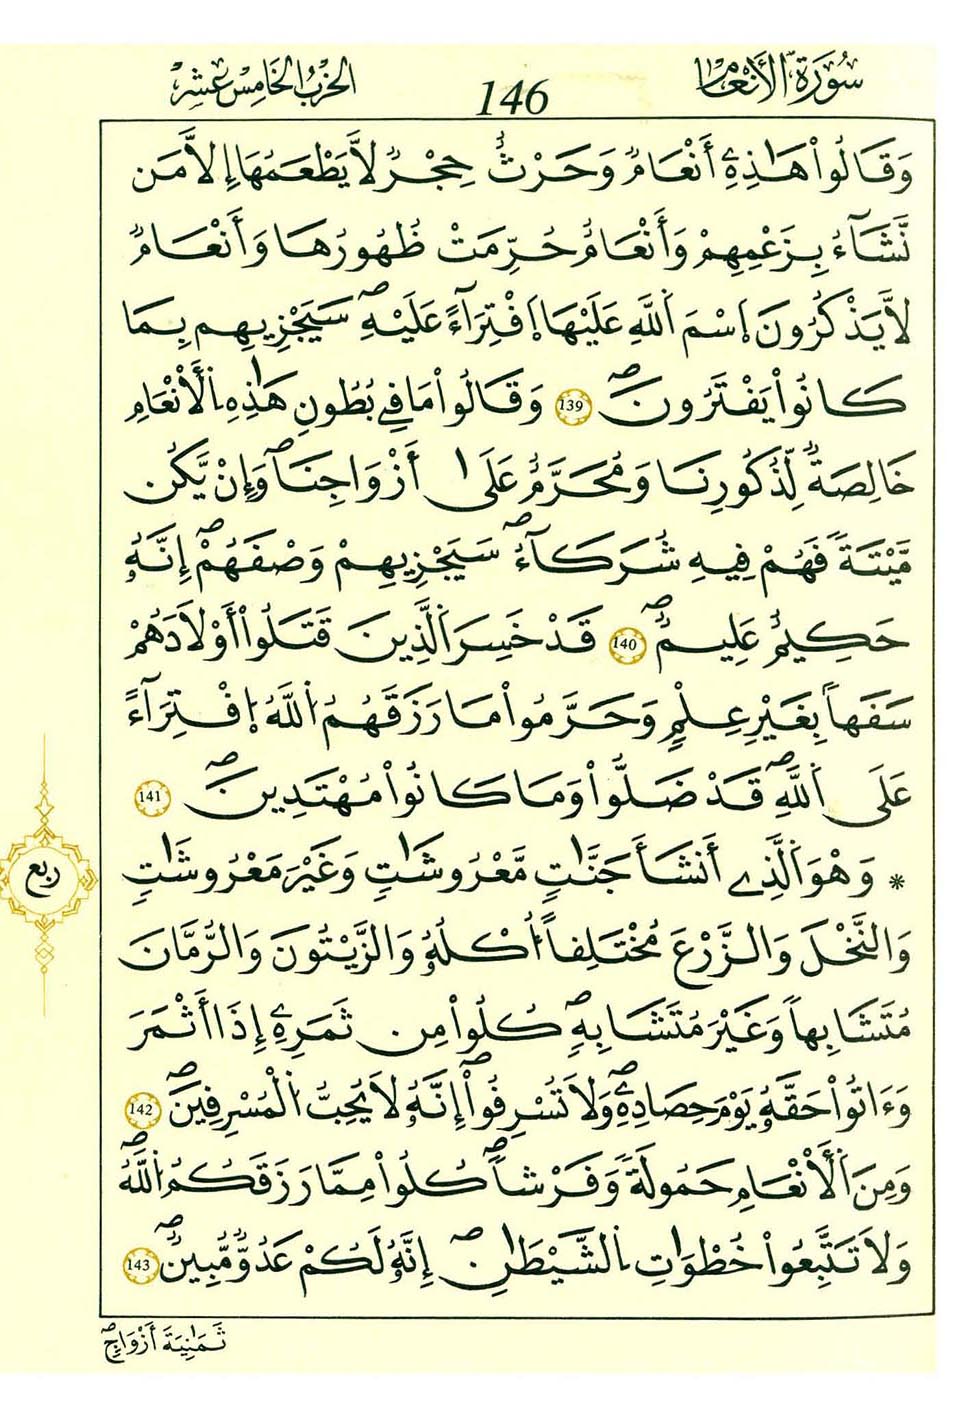 سُورَةُ الْأَنْعَامِ
146
الحِزْبُ الخَامِسَ عَشَرَ
وَقَالُواْ هَٰذِهِۦ أَنْعَٰمٌ وَحَرْثٌ حِجْرٌ لَّا يَطْعَمُهَا إِلَّا مَن
نَّشَآءُ بِزَعْمِهِمْ وَأَنْعَٰمٌ حُرِّمَتْ ظُهُورُهَا وَأَنْعَٰمٌ
لَّا يَذْكُرُونَ اَسْمَ اَللَّهِ عَلَيْهَا اَفْتِرَآءً عَلَيْهِۖ سَيَجْزِيهِم بِمَا
كَانُواْ يَفْتَرُونَۖ 139 وَقَالُواْ مَا فِے بُطُونِ هَٰذِهِ اِلْأَنْعَٰمِ
خَالِصَةٌ لِّذُكُورِنَا وَمُحَرَّمٌ عَلَىٰ أَزْوَٰجِنَاۖ وَإِنْ يَّكُن
مَّيْتَةً فَهُمْ فِيهِ شُرَكَآءُۖ سَيَجْزِيهِمْ وَصْفَهُمْۖ إِنَّهُۥ
حَكِيمٌ عَلِيمٌۖ 140 قَدْ خَسِرَ اَلَّذِينَ قَتَلُواْ أَوْلَٰدَهُمْ
سَفَهاً بِغَيْرِ عِلْمٍ وَحَرَّمُواْ مَا رَزَقَهُمُ اُللَّهُ اُفْتِرَآءً
عَلَى اَللَّهِۖ قَدْ ضَلُّواْ وَمَا كَانُواْ مُهْتَدِينَۖ 141
* وَهْوَ اَلَّذِے أَنشَأَ جَنَّٰتٍ مَّعْرُوشَٰتٍ وَغَيْرَ مَعْرُوشَٰتٍ
وَالنَّخْلَ وَالزَّرْعَ مُخْتَلِفاً اُكْلُهُۥ وَالزَّيْتُونَ وَالرُّمَّانَ
مُتَشَٰبِهاً وَغَيْرَ مُتَشَٰبِهٍۖ كُلُواْ مِن ثَمَرِهِۦ إِذَا أَثْمَرَ
وَءَاتُواْ حَقَّهُۥ يَوْمَ حِصَادِهِۦۖ وَلَا تُسْرِفُواْۖ إِنَّهُۥ لَا يُحِبُّ اُلْمُسْرِفِينَۖ 142
وَمِنَ اَلْأَنْعَٰمِ حَمُولَةً وَفَرْشاًۖ كُلُواْ مِمَّا رَزَقَكُمُ اُللَّهُۖ
وَلَا تَتَّبِعُواْ خُطْوَٰتِ اِلشَّيْطَٰنِۖ إِنَّهُۥ لَكُمْ عَدُوٌّ مُّبِينٌۖ 143
ربع
ثَمَٰنِيَةَ أَزْوَٰجٍۖ